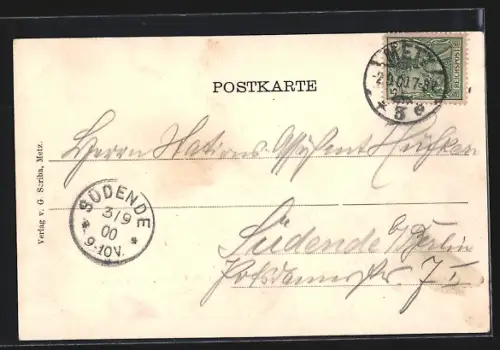 POSTKARTE
METZ
2.9.00.7-8V
* 3 e
Herrn Stations Assistent
in
Südende b/Berlin
Potsdamerstr. 7 I.
SÜDENDE
3/9
00
9-10V.
Verlag v. G. Scriba, Metz.